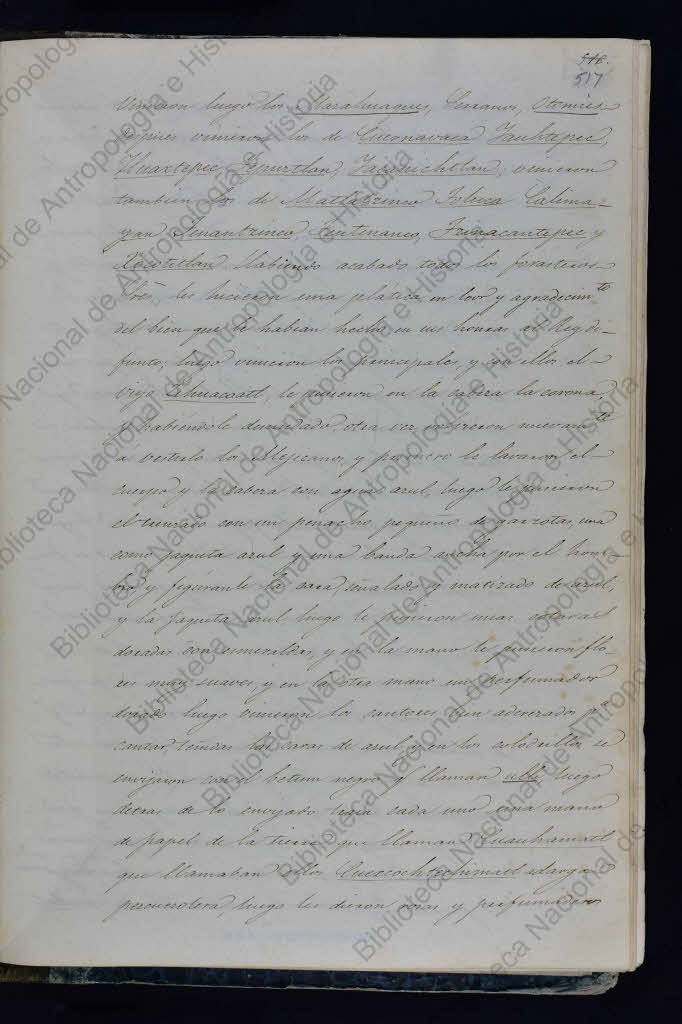 516.
517
Vinieron luego los Mazahuaques, Serranos, Otomies
despues vinieron los de Cuernavaca Yauhtepec,
Huaxtepec, Tepuztlan, Yacapichtlan; vinieron
tambien los de Matlatzinco Toluca Calima-
yan Tenantzinco, Tzinacantepec y
Xocotitlan. Habiendo acabado todos los forasteros
les hicieron una platica en loor y agradecim.to
del bien que le habian hecho en sus honras, al Rey di-
funto; luego vinieron los principales, y con ellos el
viejo Zihuacoatl, le pusieron en la cabeza la corona,
y habiendole desnudado, otra vez volvieron nuevam.te
a vestirlo los Mejicanos, y primero le lavaron el
cuerpo y la cabeza con agua azul, luego le pusieron
el trenzado con un penacho pequeño de garzotas, una
como jaqueta azul y una banda ancha por el hom-
bro y figuranle la cara, señalado y matizado de azul,
y la jaqueta azul, luego le pusieron unas
doradas con esmeraldas, y en la mano le pusieron flo-
res muy suaves, y en la otra mano un perfumador
dorado: luego vinieron los cantores bien aderezados p.a
cantar, teñidas las caras de azul, y en los colodrillos se
envijaron con el betum negro q.e llaman ulli, luego
detras de lo envijado traia cada uno una mano
de papel de la tierra que llaman Cuauhamatl
que llamaban ellos adarga o
pescuecolera, luego les dieron rosas y perfumaderos
Biblioteca Nacional de Antropología e Historia